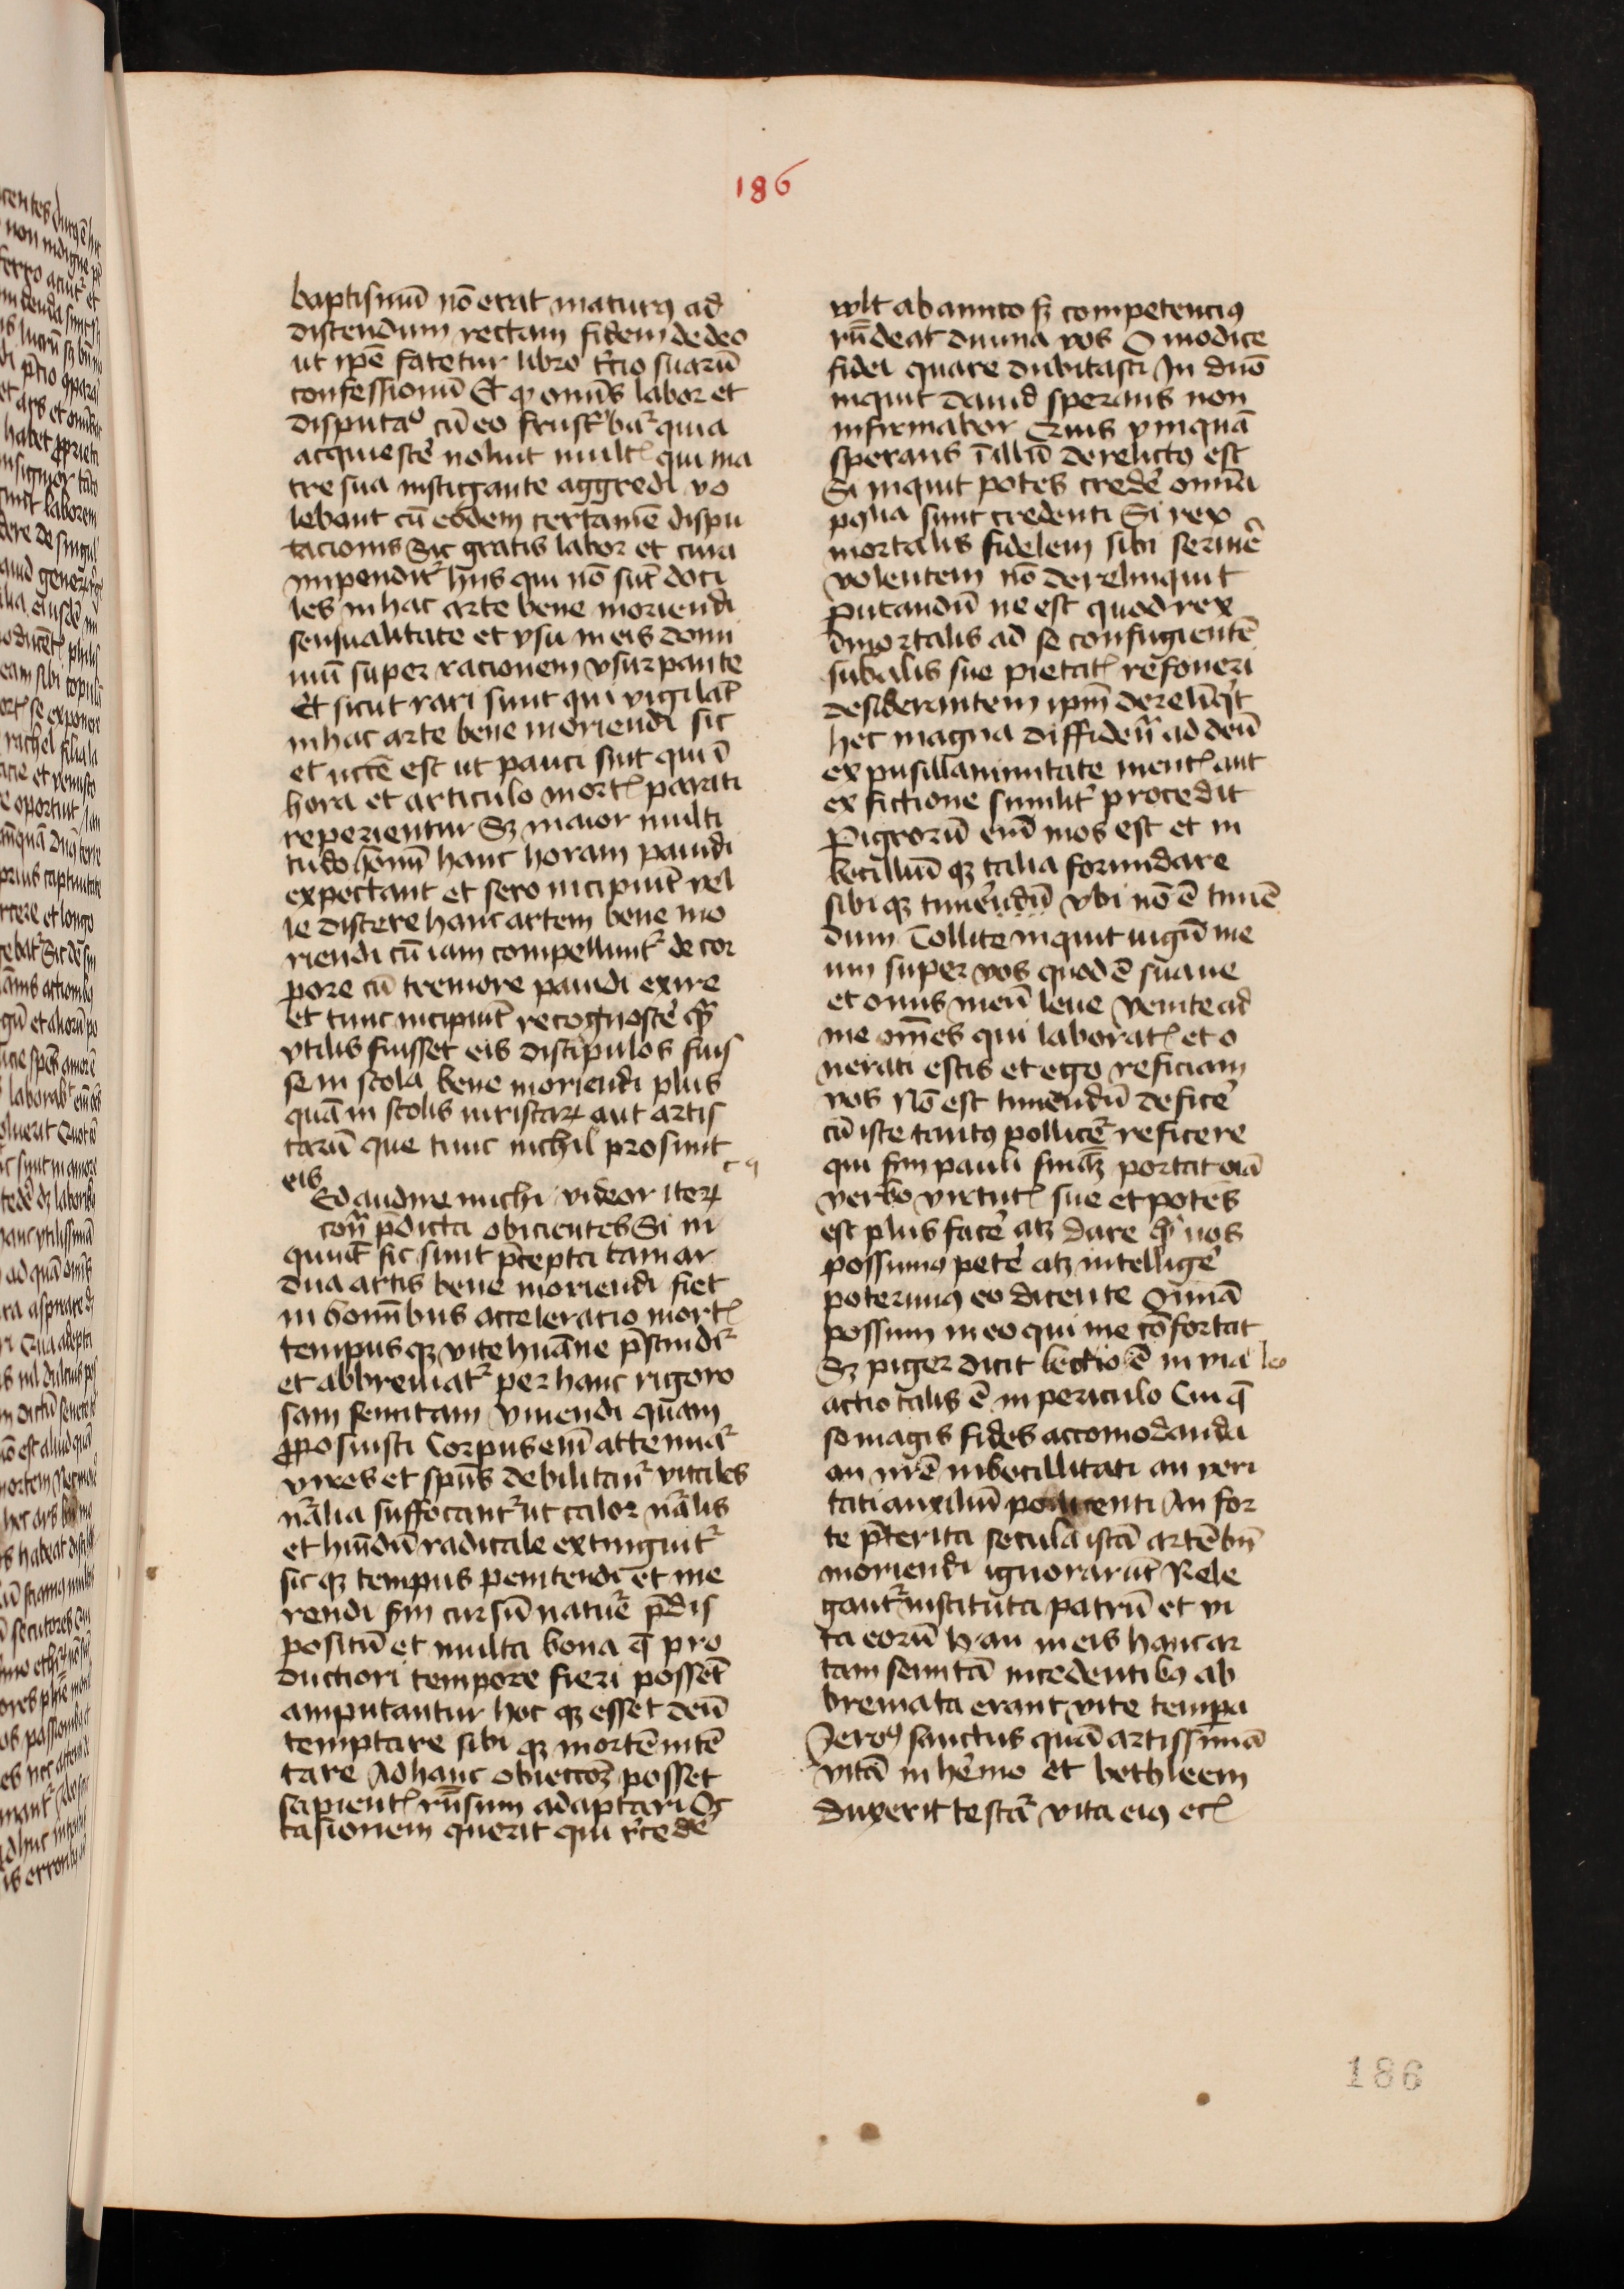 186
baptismū nō erat maturꝰ ad
discendum rectam fidem de deo
ut ip̄e fatetur libro t̄cio suarū
confessionū Et ꝙ omīs labor et
disputaᵒ cū eo frustᵃbat̉ quia
acquiescē noluit multꝭ qui ma
tre sua instigante aggredi vo
lebant cū eodem certamē dispu
tacionis Sic gratis labor et cura
impendit̉ hiis qui nō sūt doci
les in hac arte bene moriendi
sensualitate et vsu in eis domi
niū super racionem vsurpante
Et sicut rari sunt qui vigilāt
in hac arte bene moriendi sic
et n̄cc̄e est ut pauci sint qui ī
hora et articulo mortꝭ parati
reperientur Sꝫ maior multi
tudo hoīm hanc horam pauidi
expectant et sero incipiūt vel
le discere hanc artem bene mo
riendi cū iam compellunt̉ de cor
pore cū tremore pauidi exire
et tunc incipiūt recognoscē qᵃ̄
vtilis fuisset eis discipulos fuis
se in scola bene moriendi plus
quā in scolis iuristarꝝ aut artis
tarū que tunc nichil prosunt
eis
Ed audire michi videor iterꝝ
con̄ p̄dicta obicientes Si in
quiūt sic sunt p̄cepta tam ar
dua artis bene moriendi fiet
in hoībus acceleratio mortꝭ
tempus qꝫ vite huāne p̄scindit̉
et abbreuiat̉ per hanc rigoro
sam semitam viuendi quam
ꝓposuisti Corpus em̄ attenuat̉
vires et sp̄us debilitant̉ vitales
nr̄alia suffocant̉ ut calor nr̄alis
et humidū radicale extinguit̉
sic qꝫ tempus penitendi et me
rendi sm̄ cursū nature p̄dis
positū et multa bona q̄ pro
ductiori tempore fieri possēt
amputantur hoc qꝫ esset deū
temptare sibi qꝫ mortē inten
tare Ad hanc obieccōꝫ posset
sapientꝭ rn̄sum adaptari Oc
casionem querit qui r̄cedē
wlt ab amico sꝫ competenciꝰ
rn̄deat diuina vos O modice
fidei quare dubitasti In dn̄o
inquit dauid sperans non
infirmabor Quis vmquā
sperans ī illū derelictꝰ est
Si inquit potes credē omīa
possibilia sunt credenti Si rex
mortalis fidelem sibi seruire
volentem nō derelinquit
putandū ne est quod rex
īmortalis ad se confugientē
sub alis sue pietatꝭ refoueri
desiderantem ip̄m derelīqⁱt
hec magna diffiden̄ ad deū
ex pusillanimitate mentꝭ aut
ex fictione similit̉ procedit
Pigrorū em̄ mos est et in
becilliū qꝫ talia formidare
sibi qꝫ timendū vbi nō ē timē
dum Tollite inquit iugū me
um super vos quod ē suaue
et onus meū leue Venite ad
me om̄es qui laboratꝭ et o
nerati estis et ego reficiam
vos Nō est timendū deficē
cū iste tantꝰ pollicet̉ reficere
qui sm̄ pauli sniaꝫ portat oīā
verbo virtutꝭ sue et potēs
est plus facē atꝫ dare qᵃ̄ nos
possumꝰ petē atꝫ intelligē
poterimꝰ eo dicente Omīa
possum in eo qui me cōfortat
Sꝫ piger dicit lectio ē in via leo
actio talis ē in periculo Cui q̄
so magis fides accomodanda
an nr̄e inbecillitati an veri
tati auxiliū pollicenti An for
te p̄terita secula istā artē bn̄
moriendi ignorarūt Rele
gant̉ instituta patrū et vi
ta eorū Nan in eis hanc ar
tam semitā incedentibꝰ ab
breuiata erant vite tempa
Jeroꝰ sanctus quā artissimā
vitā in heremo et bethleem
duxerit testat̉ vita eiꝰ etꝭ
186